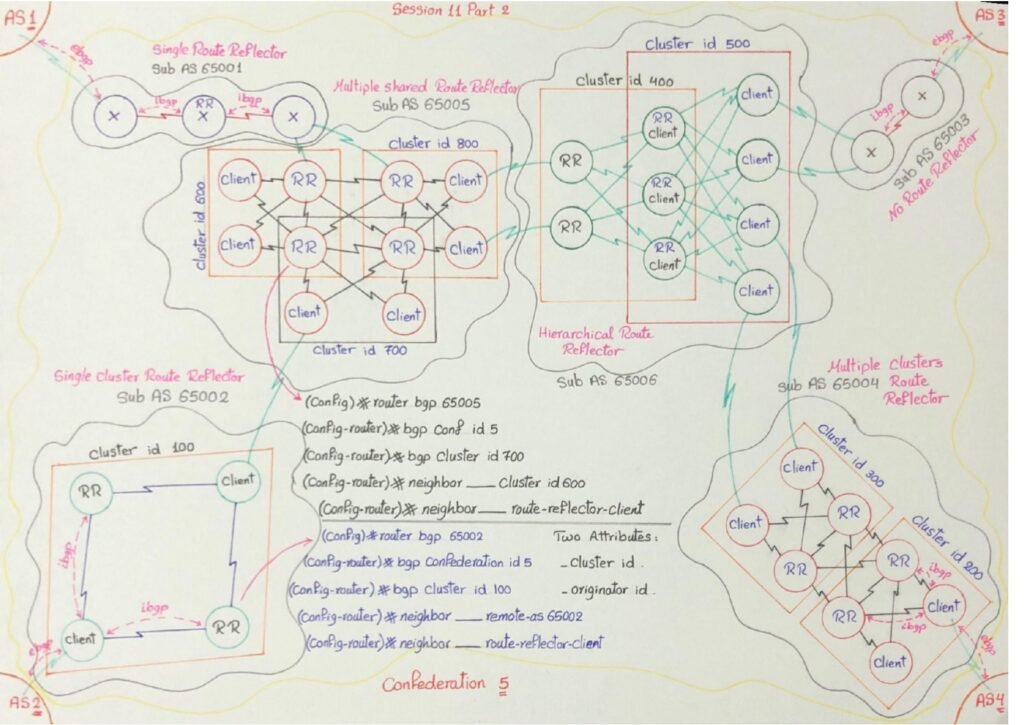 Session 11 Part 2
AS1
AS3
ebgp
ebgp
Single Route Reflector
Sub AS 65001
X
ibgp
RR
X
ibgp
X
Multiple shared Route Reflector
Sub AS 65005
Cluster id 800
Cluster id 600
Client
RR
RR
Client
Client
RR
RR
Client
Client
Client
Cluster id 700
Cluster id 500
Cluster id 400
RR
RR
RR
Client
RR
Client
RR
Client
Client
Client
Client
Client
Hierarchical Route
Reflector
Sub AS 65006
X
ibgp
X
Sub AS 65003
No Route Reflector
Single cluster Route Reflector
Sub AS 65002
Cluster id 100
RR
Client
ibgp
ibgp
Client
RR
ebgp
AS2
(Config)# router bgp 65005
(Config-router)# bgp Conf id 5
(Config-router)# bgp Cluster id 700
(Config-router)# neighbor ___ Cluster id 600
(Config-router)# neighbor ___ route-reflector-client
(Config)# router bgp 65002
(Config-router)# bgp Confederation id 5
(Config-router) # bgp cluster id 100
(Config-router)# neighbor ___ remote-as 65002
(Config-router)# neighbor ___ route-reflector-client
Two Attributes:
- Cluster id.
- originator id.
Multiple Clusters
Sub AS 65004 Route
Reflector
Cluster id 300
Client
Client
RR
RR
Cluster id 200
RR
ibgp
RR
ibgp
Client
Client
ebgp
AS4
Confederation 5